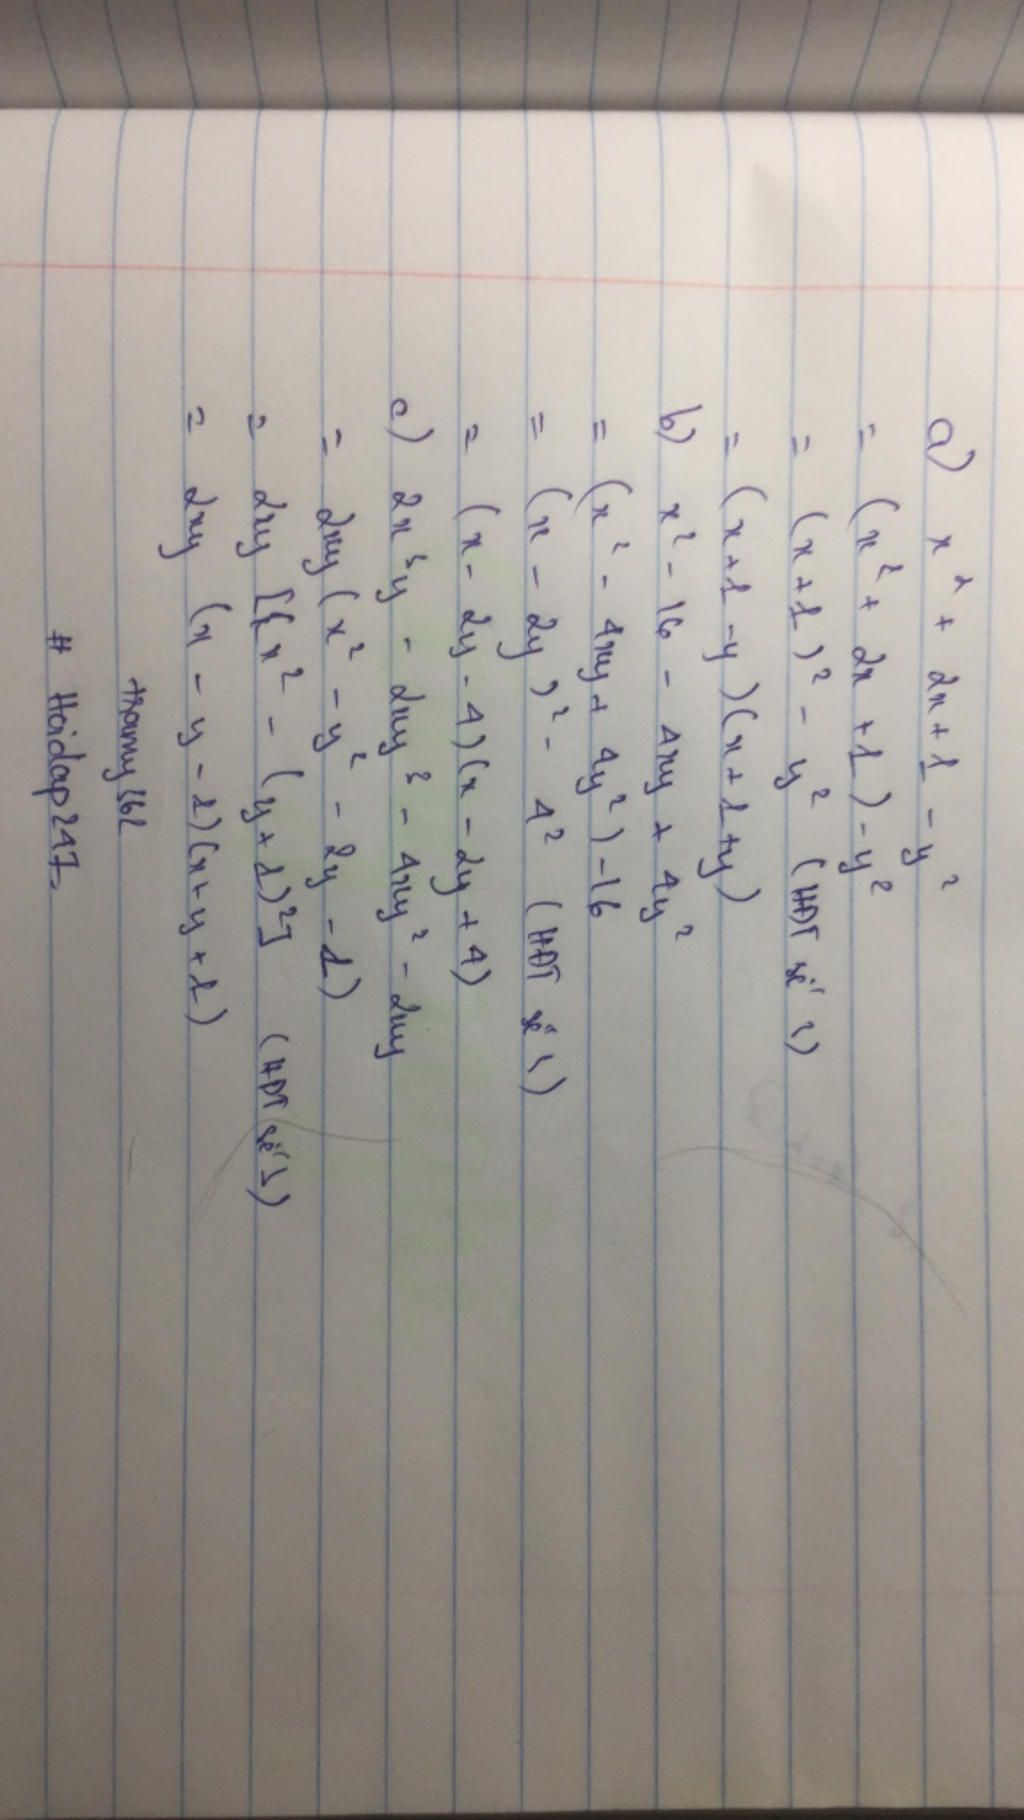 a) x² + 2x + 1 - y²
= (x² + 2x + 1) - y²
= (x + 1)² - y² (HĐT số 3)
= (x + 1 - y)(x + 1 + y)
b) x² - 16 - 4xy + 4y²
= (x² - 4xy + 4y²) - 16
= (x - 2y)² - 4² (HĐT số 3)
= (x - 2y - 4)(x - 2y + 4)
c) 2x³y - 2xy³ - 4xy² - 2xy
= 2xy (x² - y² - 2y - 1)
= 2xy [x² - (y + 1)²] (HĐT số 3)
= 2xy (x - y - 1)(x + y + 1)
# Hoidap247.